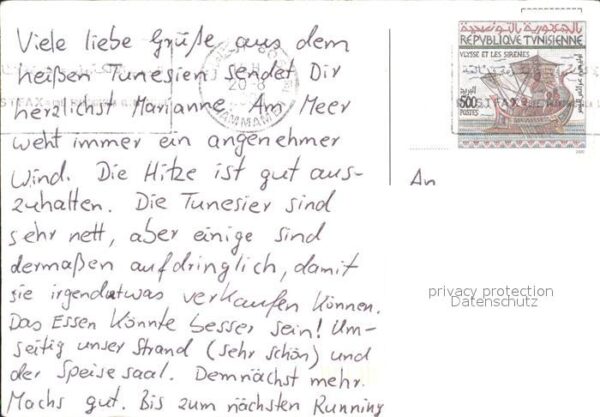 Viele liebe Grüße aus dem
heißen Tunesien sendet Dir
herzlichst Marianne. Am Meer
weht immer ein angenehmer
Wind. Die Hitze ist gut aus-
zuhalten. Die Tunesier sind
sehr nett, aber einige sind
dermaßen aufdringlich, damit
sie irgendetwas verkaufen können.
Das Essen könnte besser sein! Um-
seitig unser Strand (sehr schön) und
der Speisesaal. Demnächst mehr.
Machs gut. Bis zum nächsten Running
20-8
HAMMAM
الجمهورية التونسية
REPUBLIQUE TUNISIENNE
ULYSSE ET LES SIRENES
البريد
500
POSTES
An
privacy protection
Datenschutz